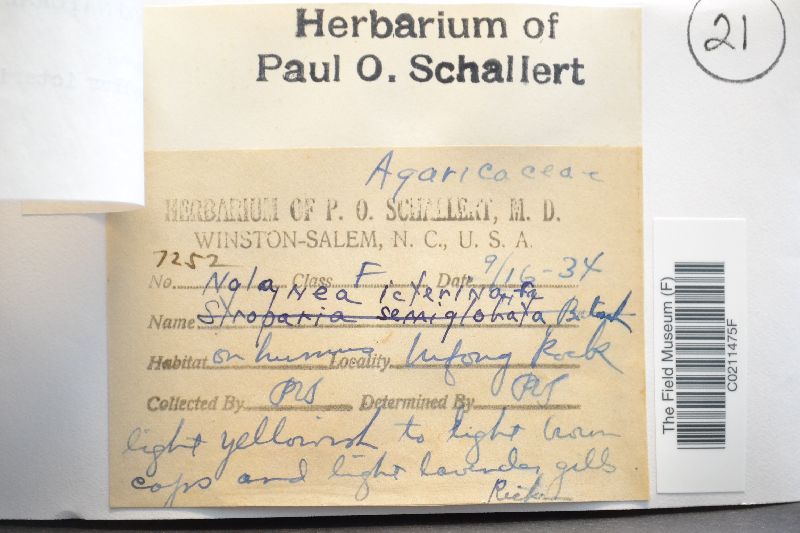 Herbarium of
Paul O. Schallert
21
Agaricaceae
HERBARIUM OF P. O. SCHALLERT, M. D.
WINSTON-SALEM, N. C., U. S. A.
7252
No. Class F Date 9/16-34
Nolanea icterina Fr
Name Stroparia semiglobata Batsch
Habitat on humus Locality Rock
Collected By POS Determined By POS
light yellowish to light brown
caps and light lavender gills
The Field Museum (F)
C0211475F